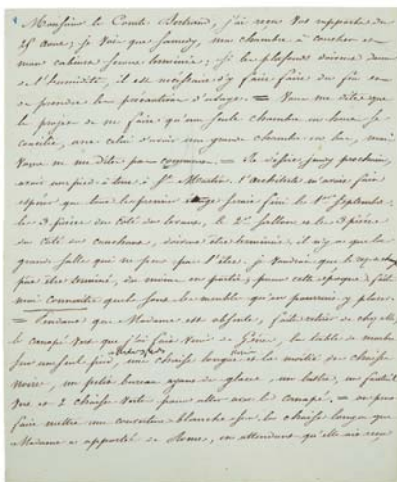 Monsieur le Comte Bertrand, j'ai reçu vos rapports du
25 aout; je vois que samedy, ma chambre à coucher et
mon cabinet seront terminés; si les plafonds doivent donner
de l'humidité, il est nécessaire d'y faire faire du feu et
de prendre les précautions d'usage. = Vous me dites que
le projet de ne faire qu'une seule chambre en haut se
concilie, avec celui d'avoir une grande chambre en bas, mais
vous ne me dites pas comment. = Je désire, jeudy prochain,
avoir un pied à terre à St Martin. L'architecte m'avait fait
espérer que tout le premier étage serait fini le 1er septembre.
les 3 pièces du coté du levant, le 2e sallon, et les 3 pièces
du coté du couchant, doivent être terminées, il n'y a que la
grande salle qui ne peut pas l'être. je voudrais que le
pût être terminé, du moins en partie, pour cette époque; faites
moi connaître quels sont les meubles qu'on pourrait y placer.
= Pendant que Madame est absente, faites retirer de chez elle
le canapé vert que j'ai fait venir de Gênes, la table de marbre
sur un seul pied, une chaise longue et la moitié des chaises
noires, un petit bureau ayant des glaces, un lustre, un fauteuil
vert et 2 chaises vertes pour aller avec le canapé. = on peut
faire mettre une couverture blanche sur les chaises longues que
Madame a apportées de Rome, en attendant qu'elle ait reçu